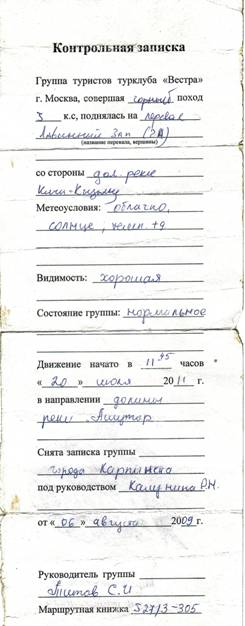 Контрольная записка
Группа туристов турклуба «Вестра»
г. Москва, совершая горный поход
3 к.с, поднялась на перевал
Лавинный Зап (2А)
(название перевала, вершины)
со стороны дол. реки
Кичи-Кызылсу
Метеоусловия: облачно,
солнце, темп. +9
Видимость: хорошая
Состояние группы: нормальное
Движение начато в 11 45 часов
«20» июля 2011 г.
в направлении долины
реки
Снята записка группы
города Карпинска
под руководством Калунина Р.Н.
от «06» августа 2009 г.
Руководитель группы
Титов С.И
Маршрутная книжка 527/3-305